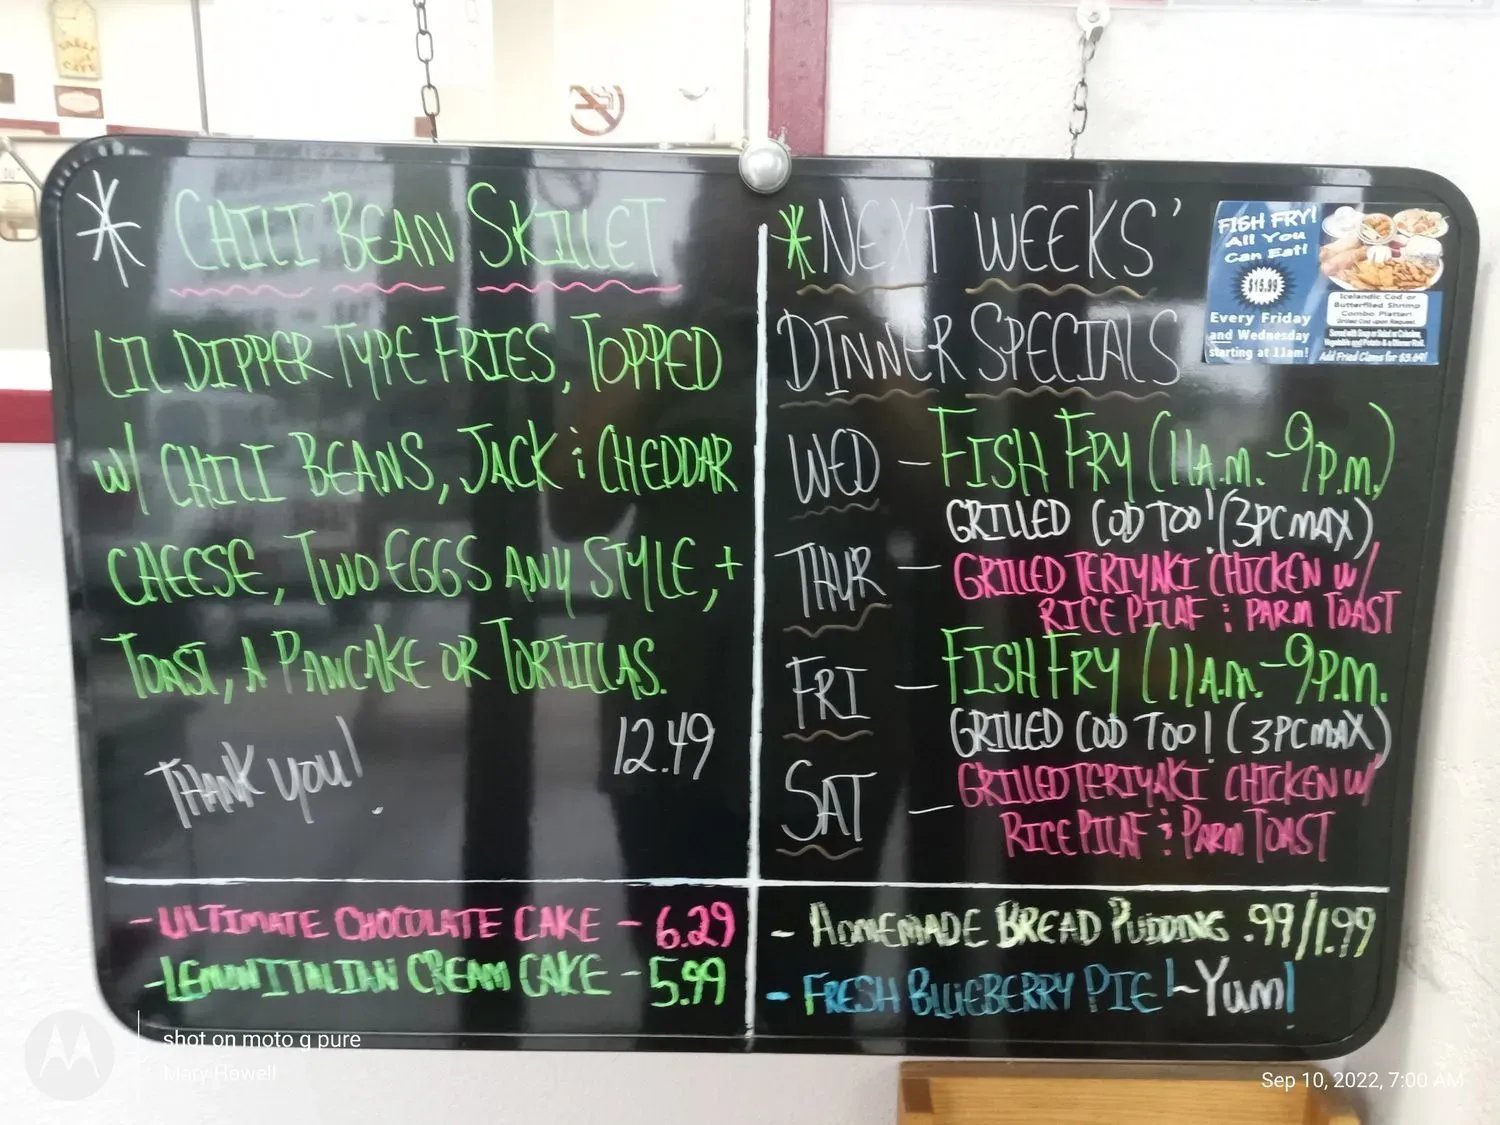 * CHILI BEAN SKILLET
LIL DIPPER TYPE FRIES, TOPPED
W/ CHILI BEANS, JACK & CHEDDAR
CHEESE, TWO EGGS ANY STYLE, +
TOAST, A PANCAKE OR TORTILLAS.
12.49
THANK YOU!
- ULTIMATE CHOCOLATE CAKE - 6.29
- LEMON ITALIAN CREAM CAKE - 5.99
* NEXT WEEKS'
DINNER SPECIALS
WED - FISH FRY (11A.M. - 9P.M.)
GRILLED COD TOO! (3PC MAX)
THUR - GRILLED TERIYAKI CHICKEN W/
RICE PILAF & PARM TOAST
FRI - FISH FRY (11A.M. - 9P.M.
GRILLED COD TOO! (3PC MAX)
SAT - GRILLED TERIYAKI CHICKEN W/
RICE PILAF & PARM TOAST
- HOMEMADE BREAD PUDDING .99/1.99
- FRESH BLUEBERRY PIE! ~ YUM!
FISH FRY!
All You
Can Eat!
$15.99
Every Friday
and Wednesday
starting at 11am!
Icelandic Cod or
Butterflied Shrimp
Combo Platter!
Grilled Cod upon Request
Served with Soup or Salad or Coleslaw,
Vegetable and Potato & a Dinner Roll.
Add Fried Clams for $3.69!
shot on moto g pure
Mary Rowell
Sep 10, 2022, 7:00 AM